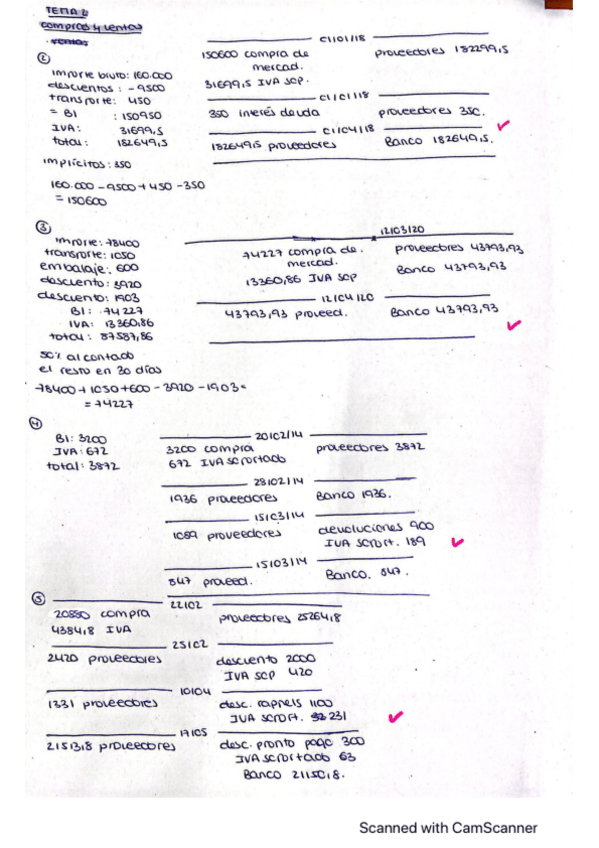 TEMA 2:
compras y ventas
· ventas
②
importe bruto: 160.000
descuentos: -9500
transporte: 450
= BI : 150950
IVA: 31699,5
total: 182649,5
implícitos: 350
160.000 - 9500 + 450 - 350
= 150600
01/01/18
150600 compra de mercad. proveedores 182299,5
31699,5 IVA sop.
01/01/18
350 interés deuda proveedores 350.
01/04/18
182649,5 proveedores Banco 182649,5.
③
importe: 78400
transporte: 1050
embalaje: 600
descuento: 3920
descuento: 1903
BI: 74227
IVA: 13360,86
total: 87587,86
50% al contado
el resto en 30 días
78400 + 1050 + 600 - 3920 - 1903 =
= 74227
12/03/20
74227 compra de mercad. proveedores 43793,93
13360,86 IVA sop Banco 43793,93
12/04/20
43793,93 proveed. Banco 43793,93
④
BI: 3200
IVA: 672
total: 3872
20/02/14
3200 compra proveedores 3872
672 IVA soportado
28/02/14
1936 proveedores Banco 1936.
15/03/14
1089 proveedores devoluciones 900
IVA soport. 189
15/03/14
847 proveed. Banco. 847.
⑤
22/02
20880 compra proveedores 25264,8
4384,8 IVA
25/02
2420 proveedores descuento 2000
IVA sop 420
10/04
1331 proveedores desc. rappels 1100
IVA soport. 231
17/05
21513,8 proveedores desc. pronto pago 300
IVA soportado 63
Banco 21150,8.
Scanned with CamScanner